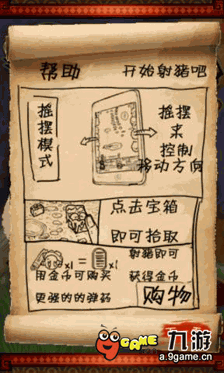 帮助
开始射猪吧
摇摆模式
摇摆
来
控制
移动方向
点击宝箱
即可拾取
x1 = x1
用金币可购买
更强的的弹药
射猪即可
获得金币
购物
GAME
九游
a.9game.cn